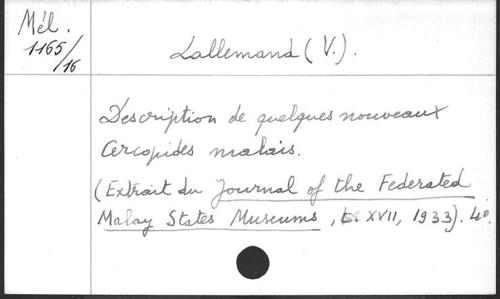 Mél.
1165/16
Lallemand (V.).
Description de quelques nouveaux
Cercopides malais.
(Extrait du Journal of the Federated
Malay States Museums, t. XVII, 1933). 4°.